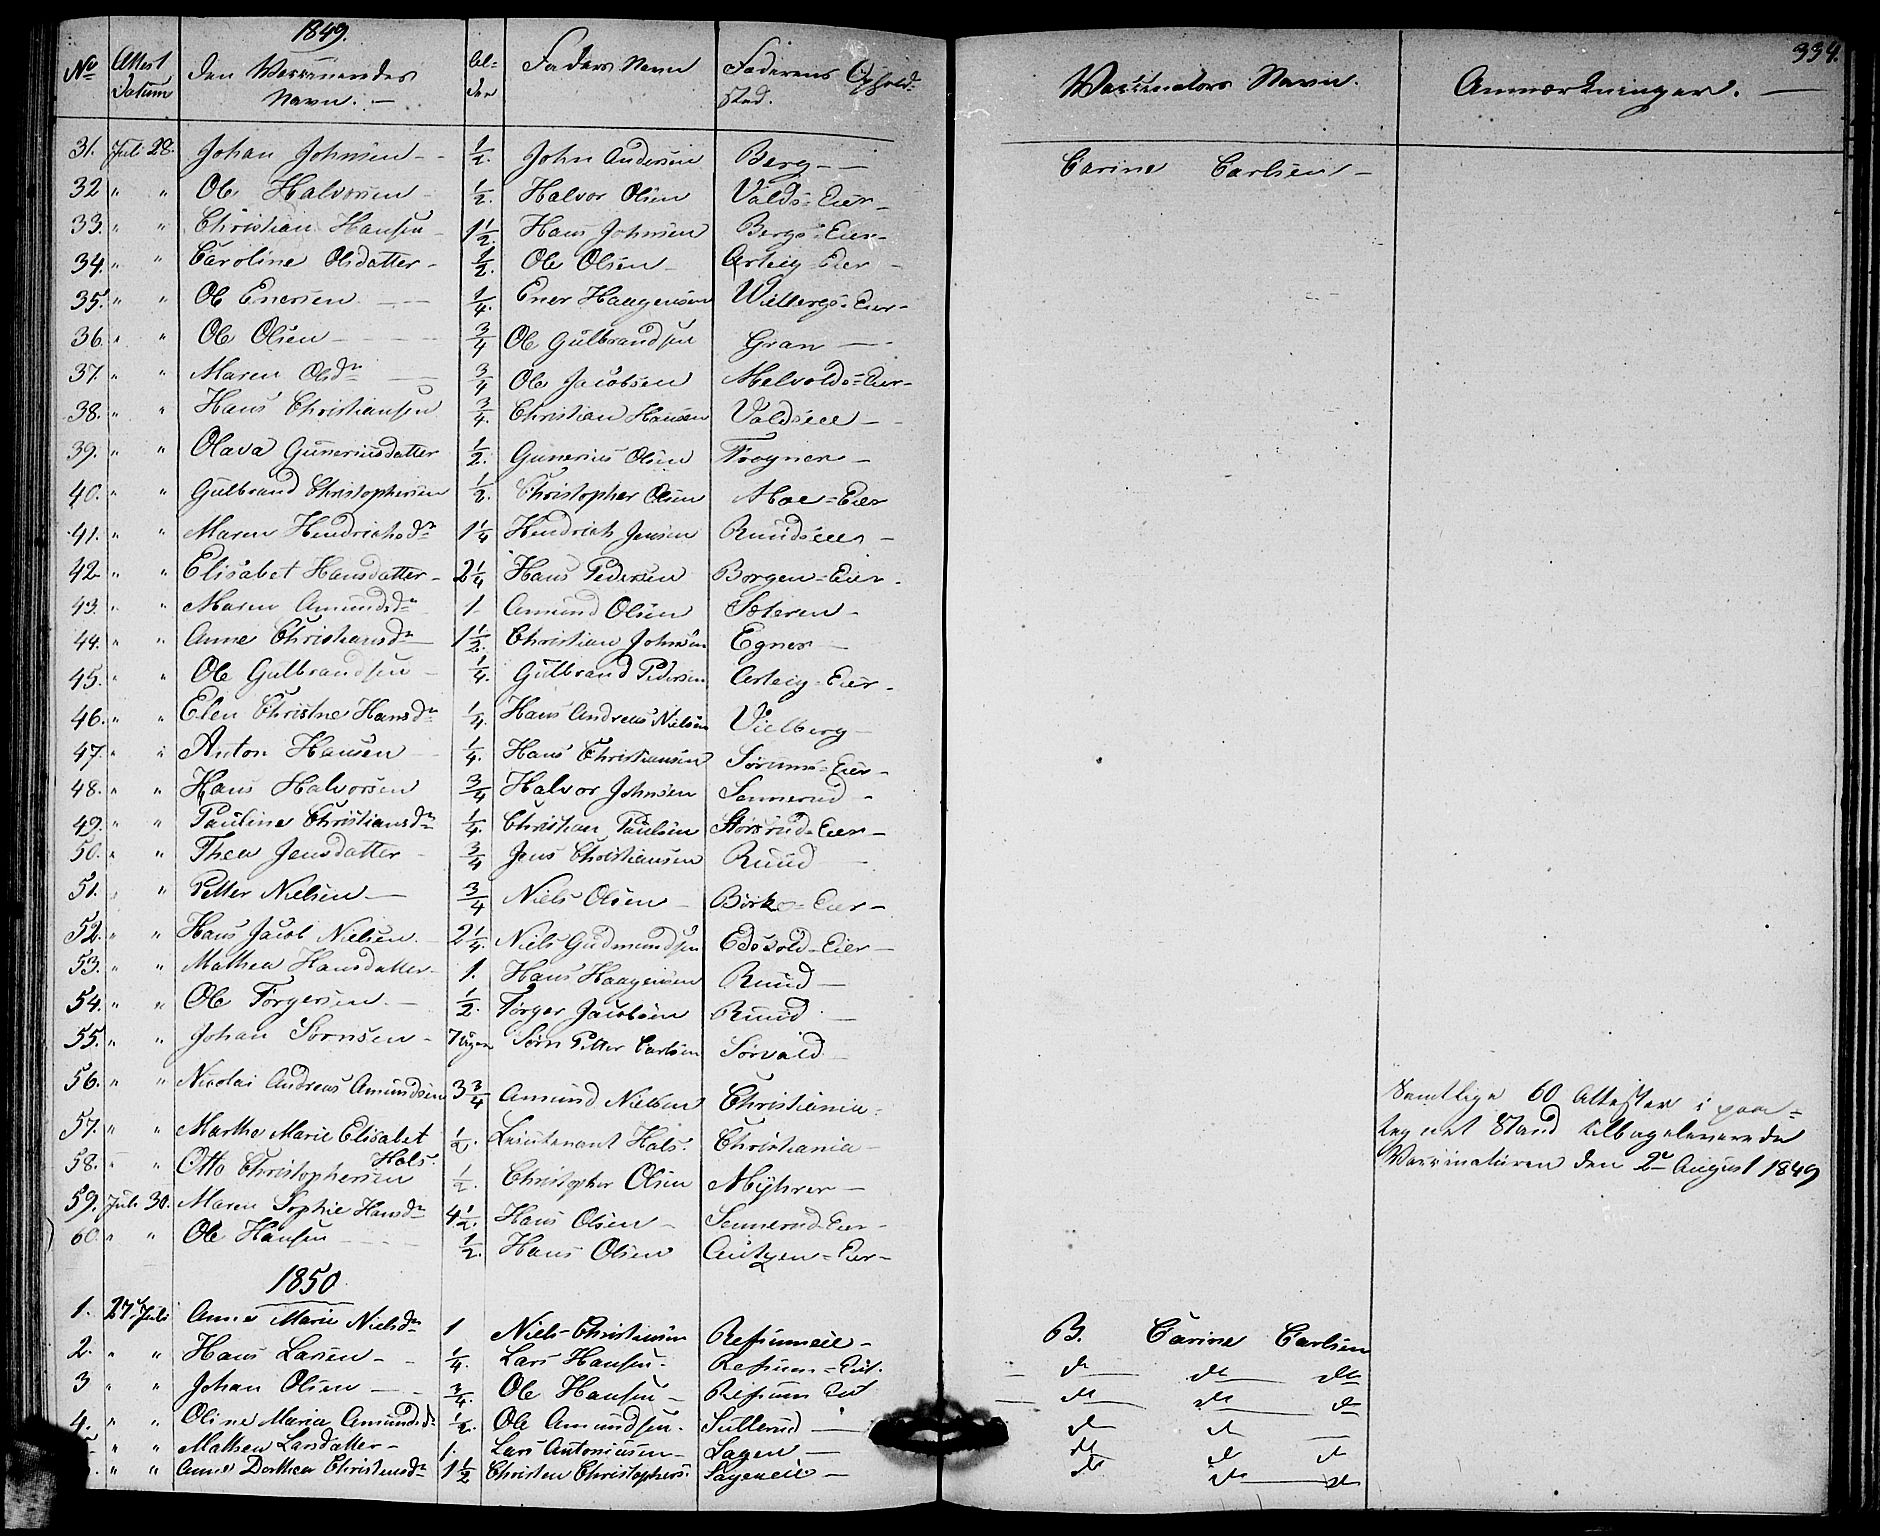 334.
1849.
No Attest Datum Den Vaccinerendes Navn. Alder Faders Navn Faderens Opholdsted. Vaccinators Navn. Anmærkninger.
31. Juli 28. Johan Johnsen 1/2. John Andersen Berg Carine Carlsen
32 " " Ole Halvorsen 1/2. Halvor Olsen Valds-Eier
33. " " Christian Hansen 1 1/2. Hans Johnsen Bergs-Eier
34. " " Caroline Olsdatter 1/2. Ole Olsen Arteig-Eier
35. " " Ole Enersen 1/4. Ener Haagensen Wilbergs-Eier
36. " " Ole Olsen 3/4 Ole Gulbrandsen Gran
37. " " Maren Olsdr 3/4 Ole Jacobsen Melvolds-Eier
38. " " Hans Christiansen 3/4. Christian Hansen Valdseie
39. " " Olava Gunneriusdatter 1/2. Gunerius Olsen Frogner
40. " " Gulbrand Christophersen 1/2. Christopher Olsen Moe-Eier
41. " " Maren Hendrichsdr 1 1/4 Hendrich Jensen Ruudseie
42 " " Elisabet Hansdatter 2 1/4 Hans Pedersen Borgen-Eier
43. " " Maren Amundsdr 1 Amund Olsen Sæteren
44. " " Anne Christiansdr 1 1/2. Christian Johnsen Egner
45. " " Ole Gulbrandsen 1/4. Gulbrand Pedersen Arteig-Eier
46. " " Elen Christne Hansdr 1/4. Hans Andreas Nielsen Vielberg
47. " " Anton Hansen 1/4. Hans Christiansen Sørums-Eier
48. " " Hans Halvorsen 3/4 Halvor Johnsen Sennerud
49. " " Pauline Christiansdr 1/4. Christian Paulsen Storsrud-Eier
50. " " Thea Jensdatter 3/4 Jens Christiansen Ruud
51. " " Petter Nielsen 3/4 Niels Olsen Birke-Eier
52. " " Hans Jacob Nielsen. 2 1/4. Niels Gudmundsen Edsvold-Eier
53. " " Mathea Hansdatter 1. Hans Haagensen Ruud
54. " " Ole Torgersen 1/2. Torger Jacobsen Ruud
55. " " Johan Sørnsen 7 Uger Sørn Petter Carlsen Sørvald
56. " " Nicolai Andreas Amundsen 3 3/4 Amund Nielsen Christiania
57. " " Marthe Marie Elisabet Hals. 1/2. Lieutenant Hals. Christiania
58. " " Otto Christophersen 1/2. Christopher Olsen Myhrer
59. Juli 30. Maren Sophie Hansdr 4 1/2. Hans Olsen Sennerud-Eier
60. " " Ole Hansen 1/2. Hans Olsen Eier
Samtlige 60 Attester i paa-
tegnet Stand tilbageleverede
Vaccinatricen den 2den August 1849
1850
1. 27. Juli Anne Marie Nielsdr 1 Niels Christiansen Refsumeie B. Carine Carlsen
2. " " Hans Larsen 1/4. Lars Hansen. Refsum-Eiet. do do do
3 " " Johan Olsen 3/4. Ole Hansen Refsum Eiet do do do
4. " " Oline Maria Amundsdr 1/2. Ole Amundsen. Sullerud do do
" " Mathea Larsdatter 1. Lars Antoniusen Sagen do do do
" " Anne Dorthea Christensdr 1 1/2 Christen Christophers. Sageneie do do do